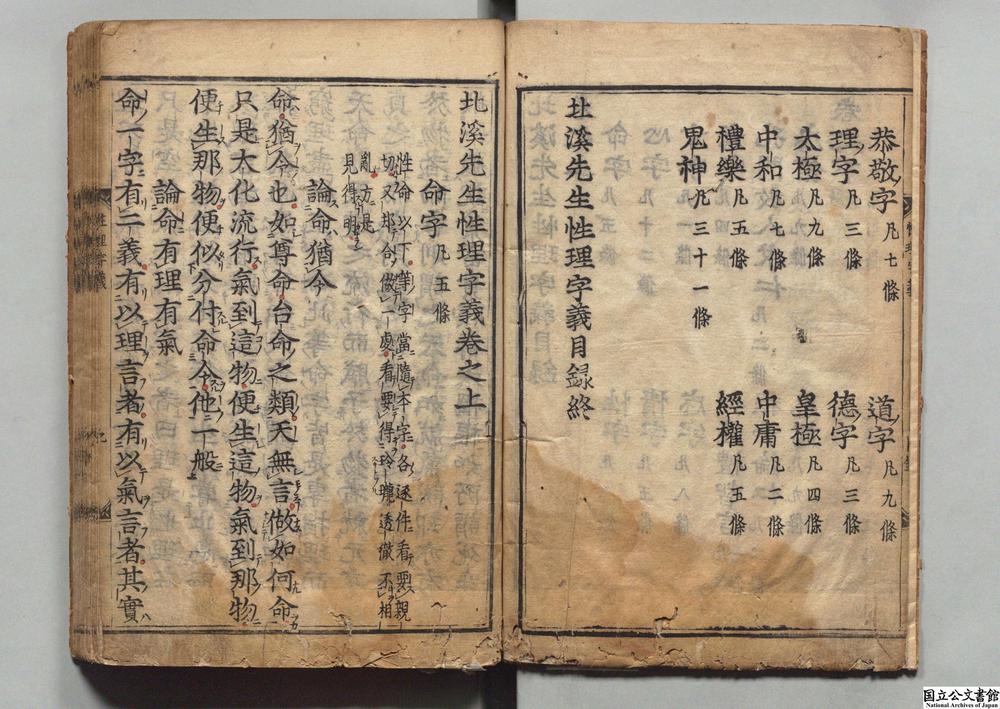 恭敬字 凡七條 道字 凡九條
理字 凡三條 德字 凡三條
太極 凡九條 皇極 凡四條
中和 凡七條 中庸 凡二條
禮樂 凡五條 經權 凡五條
鬼神 凡三十一條
北溪先生性理字義目録終
北溪先生性理字義卷之上
命字 凡五條
性命以下等字當隨本字各逐件看要親
切又却合做一處看要得玲瓏透徹不相
亂方是
見得明
論命猶令
命猶令也如尊命台命之類天無言做如何命
只是大化流行氣到這物便生這物氣到那物
便生那物便似分付命令他一般
論命有理有氣
命一字有二義有以理言者有以氣言者其實
国立公文書館
National Archives of Japan